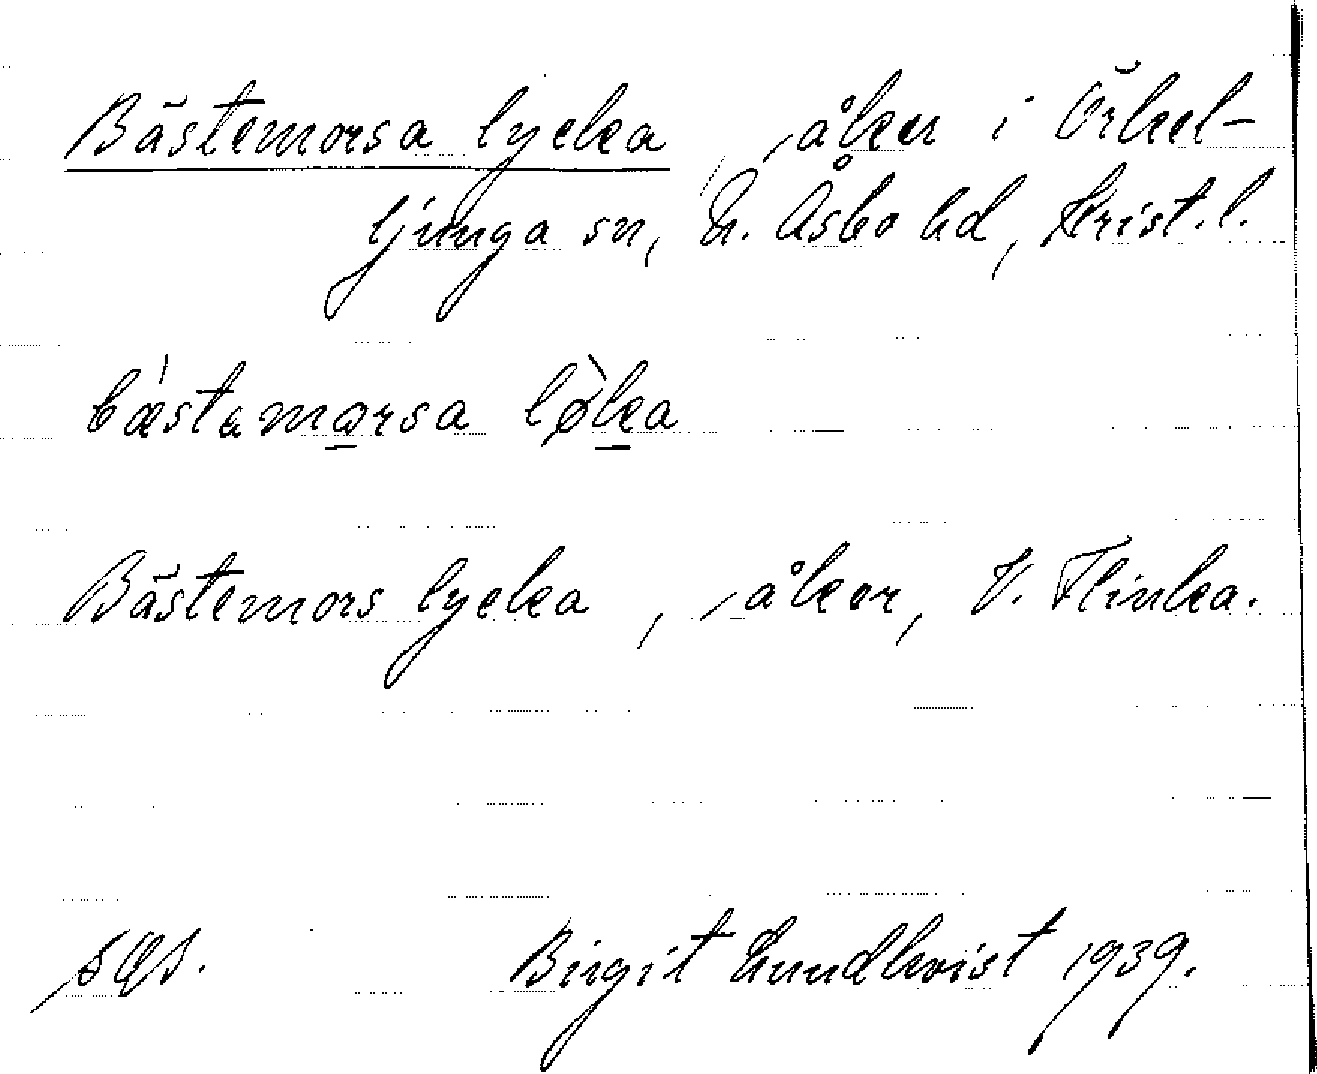 Bästemorsa lycka, åker i Örkel-
ljunga sn, N. Åsbo hd, Krist. l.
bæstamarsa løka
Bästemors lycka, åker, V. Flinka.
sgs. Birgit Lundkvist 1939.